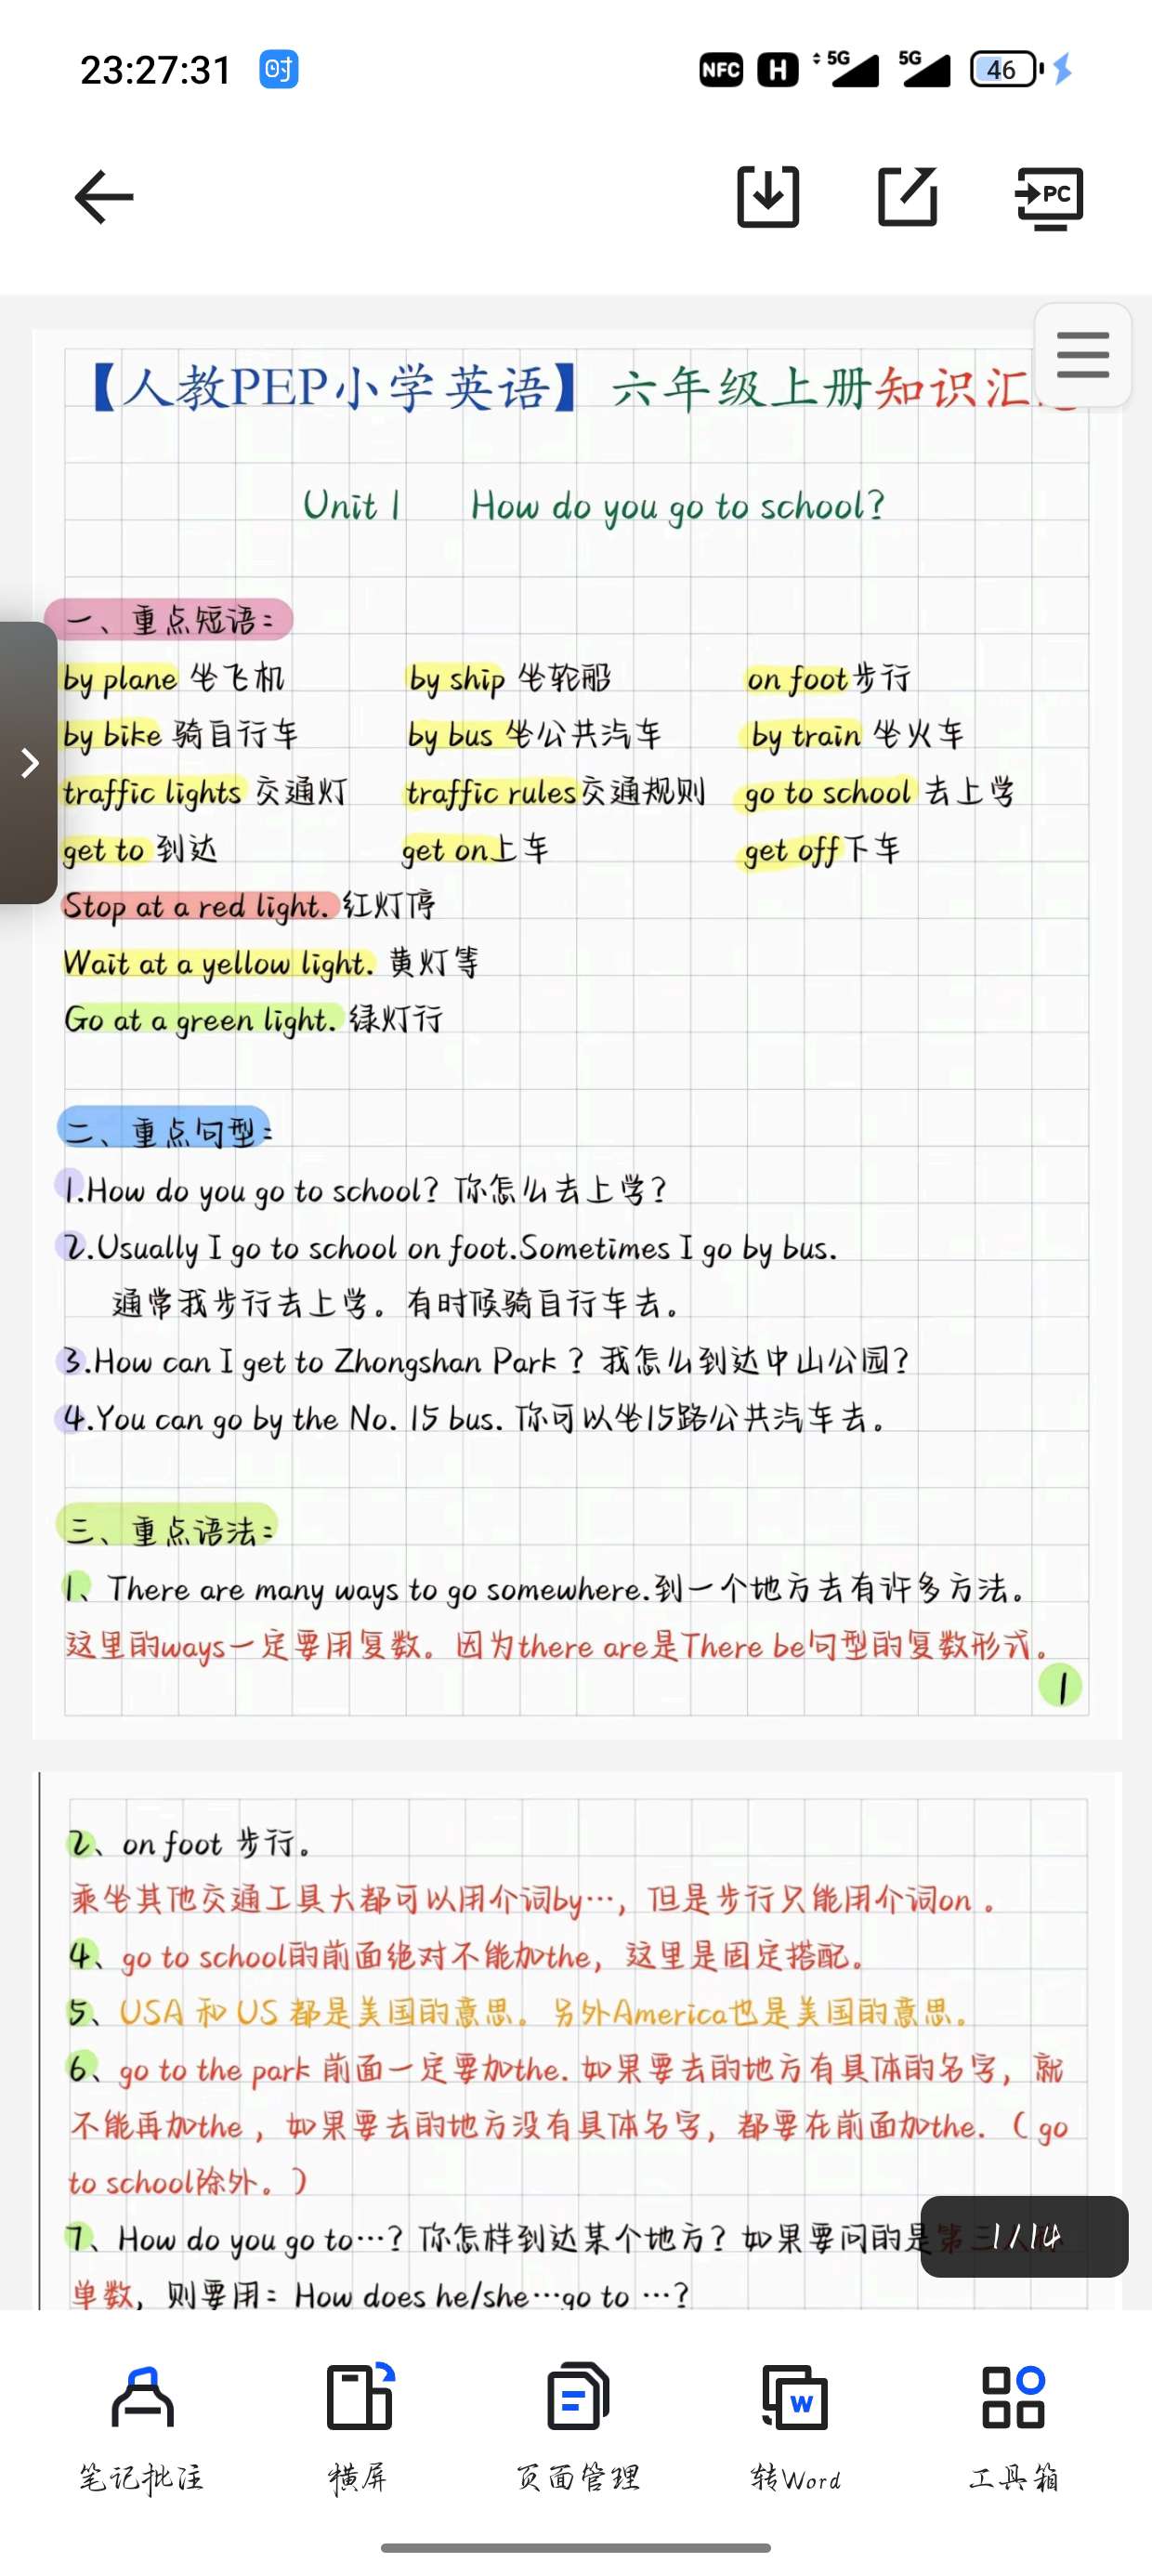 23:27:31 时 NFC H 5G 5G 46
PC
【人教PEP小学英语】 六年级上册知识汇
Unit 1 How do you go to school?
一、重点短语:
by plane 坐飞机 by ship 坐轮船 on foot步行
by bike 骑自行车 by bus 坐公共汽车 by train 坐火车
traffic lights 交通灯 traffic rules交通规则 go to school 去上学
get to 到达 get on上车 get off下车
Stop at a red light. 红灯停
Wait at a yellow light. 黄灯等
Go at a green light. 绿灯行
二、重点句型:
1.How do you go to school? 你怎么去上学?
2.Usually I go to school on foot.Sometimes I go by bus.
通常我步行去上学。有时候骑自行车去。
3.How can I get to Zhongshan Park ? 我怎么到达中山公园?
4.You can go by the No. 15 bus. 你可以坐15路公共汽车去。
三、重点语法:
1、There are many ways to go somewhere.到一个地方去有许多方法。
这里的ways一定要用复数。因为there are是There be句型的复数形式。
1
2、on foot 步行。
乘坐其他交通工具大都可以用介词by…, 但是步行只能用介词on 。
4、go to school的前面绝对不能加the, 这里是固定搭配。
5、USA 和 US 都是美国的意思。另外America也是美国的意思。
6、go to the park 前面一定要加the. 如果要去的地方有具体的名字, 就
不能再加the , 如果要去的地方没有具体名字, 都要在前面加the. ( go
to school除外。)
7、How do you go to…? 你怎样到达某个地方? 如果要问的是第三人称
1/14
单数, 则要用: How does he/she…go to …?
笔记批注 横屏 页面管理 转Word 工具箱